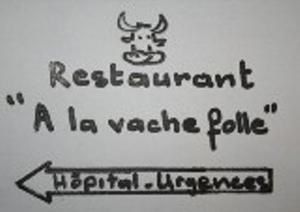 Restaurant
"A la vache folle"
Hôpital-Urgences